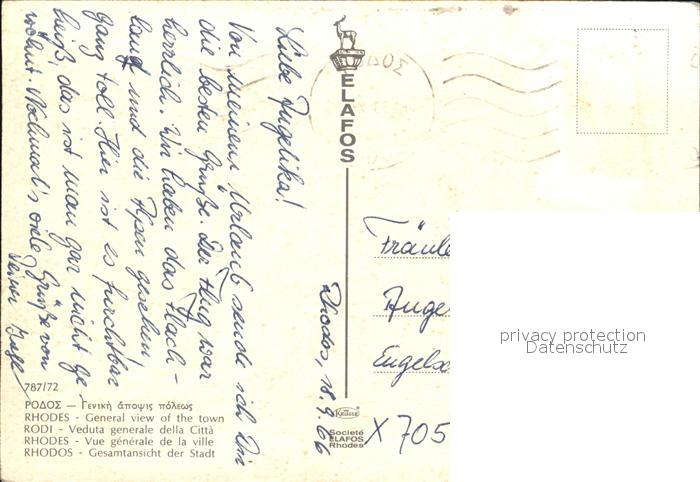 Rhodos, 18.9.66
Liebe Angelika!
Von meinem Urlaub sende ich Dir
die besten Grüße. Der Flug war
herrlich. Wir haben das Flach-
land und die Alpen gesehen,
ganz toll. Hier ist es furchtbar
heiß, das ist man gar nicht ge-
wohnt. Nochmal's viele Grüße von
Deiner
787/72
ΡΟΔΟΣ — Γενικὴ ἄποψις πόλεως
RHODES - General view of the town
RODI - Veduta generale della Città
RHODES - Vue générale de la ville
RHODOS - Gesamtansicht der Stadt
ELAFOS
Société
ELAFOS
Rhodes
Fräule
Ange
Engels
X 705
privacy protection
Datenschutz